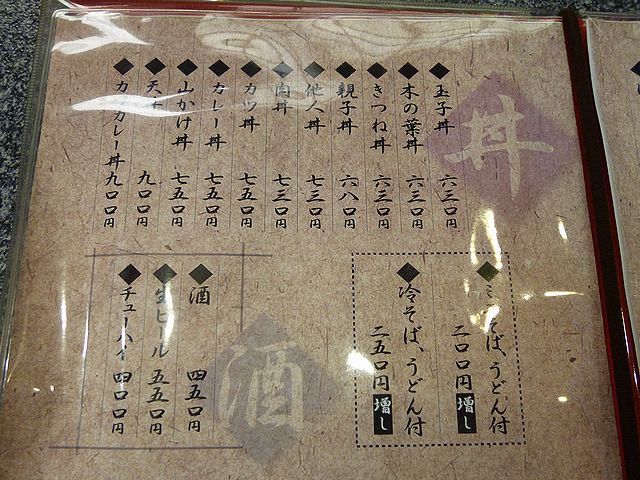 丼
玉子丼 六三〇円
木の葉丼 六三〇円
きつね丼 六三〇円
親子丼 六八〇円
他人丼 七三〇円
肉丼 七三〇円
カツ丼 七五〇円
カレー丼 七五〇円
山かけ丼 七五〇円
天丼 九〇〇円
カツカレー丼 九〇〇円
そば、うどん付
二〇〇円増し
冷そば、うどん付
二五〇円増し
酒
酒 四五〇円
生ビール 五五〇円
チューハイ 四〇〇円